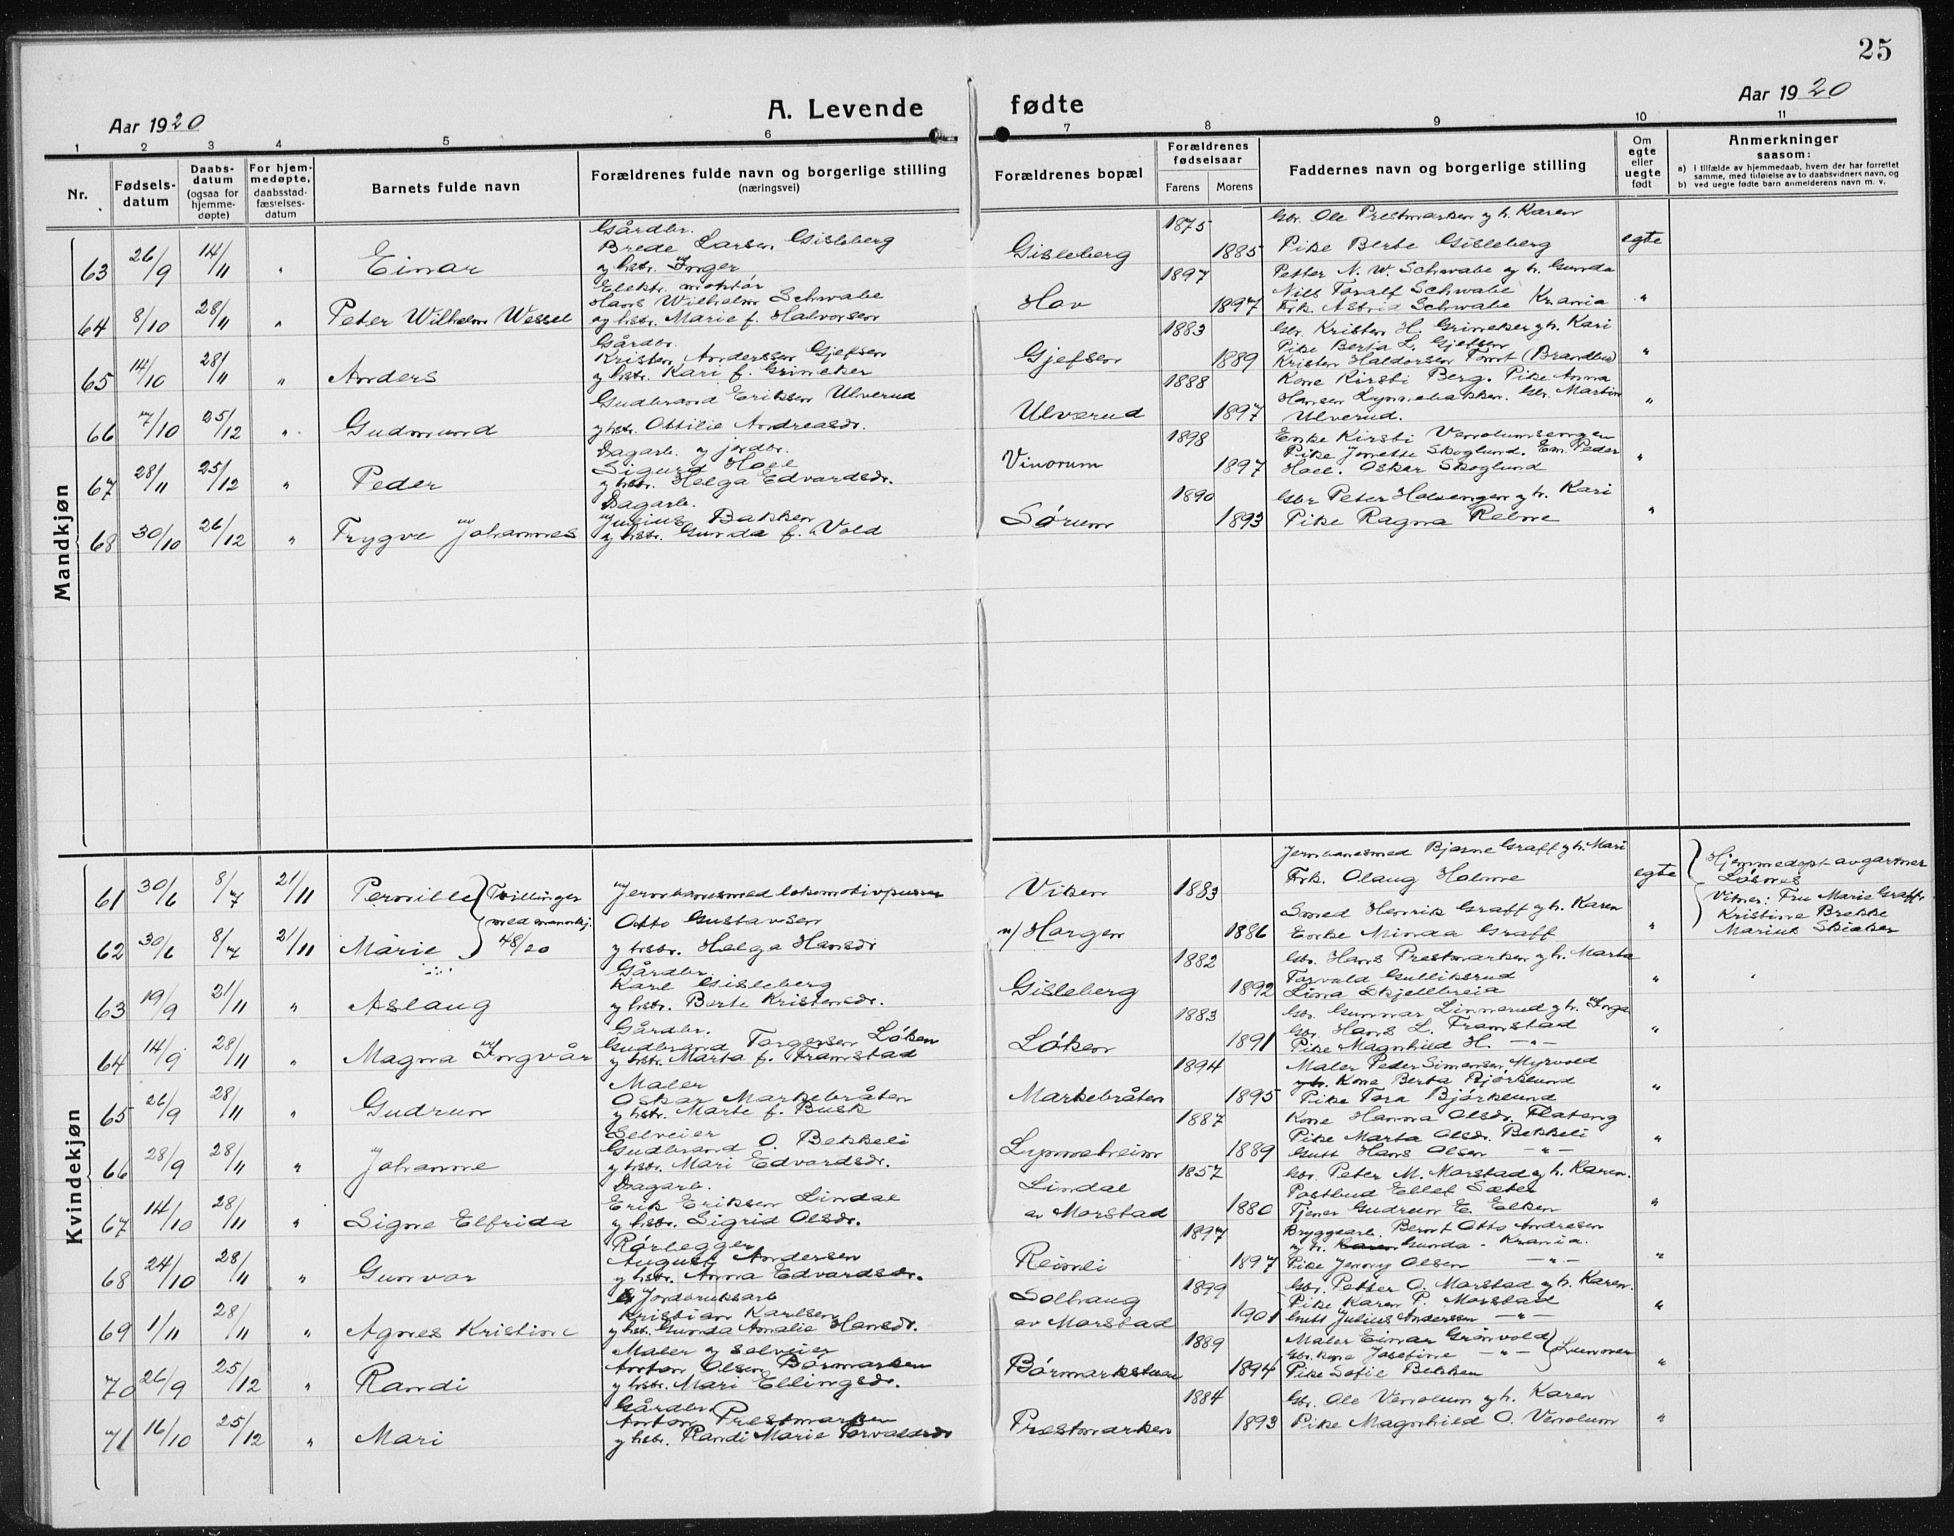 25
Aar 1920
A. Levende fødte
Aar 1920
1 2 3 4 5 6 7 8 9 10 11
Nr.
Fødsels-datum
Daabs-datum (ogsaa for hjemme-døpte)
For hjem-medøpte, daabsstad-fæstelses-datum
Barnets fulde navn
Forældrenes fulde navn og borgerlige stilling (næringsvei)
Forældrenes bopæl
Forældrenes fødselsaar
Farens Morens
Faddernes navn og borgerlige stilling
Om egte eller uegte født
Anmerkninger saasom:
a) i tilfælde av hjemmedaab, hvem der har forrettet samme, med tilføielse av to daabsvidners navn, og
b) ved uegte fødte barn anmelderens navn m. v.
Mandkjøn
63 26/9 14/11 " Einar
Gårdbr.
Brede Larsen Gisleberg
og hstr. Inger
Gisleberg 1875 1885
Gbr. Ole Prestmarken og h. Karen
Pike Berte Gisleberg
egte
64 8/10 28/11 " Peter Wilhelm Wessel
Elektr. montør
Hans Wilhelm Schwabe
og hstr. Marie f. Halvorsen
Hov 1897 1897
Petter N. W. Schwabe og h. Gunda
Nils Toralf Schwabe
Frk. Astrid Schwabe Kr.ania
"
65 14/10 28/11 " Anders
Gårdbr.
Kristen Anderssen Gjefsen
og hstr. Kari f. Grineker
Gjefsen 1883 1889
Gbr. Kristen H. Grineker og h. Kari
Pike Berja L. Gjefsen
Kristen Haldorsen Tomt (Brandbu)
"
66 7/10 25/12 " Gudmund
Gudbrand Eriksen Ulverud
og hstr. Ottilie Andreasdr.
Ulverud 1888 1897
Kone Kirsti Berg. Pike Anna
Hansen Lynnebakken. Gbr. Martin
Ulverud.
"
67 28/11 25/12 " Peder
Dagarb. og jordbr.
Sigurd Hoel
og hstr. Helga Edvardsdr.
Vinorum 1898 1897
Enke Kirsti Venolumsengen
Pike Jonette Skoglund. Em. Peder
Hoel. Oskar Skoglund
"
68 30/10 26/12 " Trygve Johannes
Dagarb.
Julius Bakken
og hstr. Gunda f. Vold
Sørum 1890 1893
Gbr Peter Halvengen og h. Kari
Pike Ragna Relne
"
Kvindekjøn
61 30/6 8/7 21/11 Pernille Tvillinger
Jernbanesmed lokomotivpusser
Viken 1883
Jernbanesmed Bjarne Graff og h. Mari
Frk. Olaug Holme
egte
Hjemmedøpt av gartner
Løsnes
Vitner: Fru Marie Graff
Kristine Brekke
Marius Skiaker
med mannkj. 48/20
62 30/6 8/7 21/11 Marie
Otto Gustavsen
og hstr. Helga Hansdr
n/ Horgen 1886
Smed Henrik Graff og h. Karen
Enke Minda Graff
"
63 19/9 21/11 " Aslaug
Gårdbr.
Karl Gisleberg
og hstr. Berte Kristensdr.
Gisleberg 1882 1892
Gbr. Hans Prestmarken og h. Marta
Torvald Gulliksrud
Lina Skjellbreia
"
64 14/9 28/11 " Magna Ingvår
Gårdbr.
Gudbrand Torgersen Løken
og hstr. Marta f. Framstad
Løken 1883 1891
Gbr. Gunnar Linnerud og h. Inga
Gbr. Hans L. Framstad
Pike Magnhild H. — " —
"
65 26/9 28/11 " Gudrun
Maler
Oskar Markebråten
og hstr. Marte f. Busk
Markebråten 1894 1895
Maler Peder Simensen Myrvold
og h. Kone Berta Bjørklund
Pike Tora Bjørklund
"
66 28/9 28/11 " Johanne
Selveier
Gudbrand O. Bekkeli
og hstr. Mari Edvardsdr.
Lynneheim 1887 1889
Kone Hanna Olsdr. Flateng
Pike Marta Olsdr. Bekkeli
Gutt Hans Olsen — " —
"
67 14/10 28/11 " Signe Elfrida
Dagarb.
Erik Eriksen Lindal
og hstr. Sigrid Olsdr.
Lindal
av Morstad 1857 1880
Gbr. Peter M. Morstad og h. Karen.
Postbud Ellef Sæter
Tjener Gudrun E. Elken
"
68 24/10 28/11 " Gunvor
Rørlegger
August Andersen
og hstr. Anna Edvardsdr.
Reinli 1897 1897
Bryggearb. Bernt Otto Andresen
og h. Karen Gunda - Kr.ania.
Pike Jenny Olsen — " —
"
69 1/11 28/11 " Agnes Kristine
Jordbruksarb
Kristian Karlsen
og hstr. Gunda Amalie Hansdr.
Solhaug
av Morstad 1899 1901
Gbr. Petter O. Morstad og h. Karen.
Pike Karen P. Morstad
Gutt Julius Anderssen — " —
"
70 26/9 25/12 " Randi
Maler og selveier
Anton Olsen Børmarken
og hstr. Mari Ellingsdr.
Børmarkstuen 1889 1894
Maler Einar Grønvold
Gbr. kone Josefine — " — Lunner
Pike Sofie Bekken
"
71 16/10 25/12 " Mari
Gårdbr.
Anton Prestmarken
og hstr. Randi Marie Torvaldsdr
Prestmarken 1884 1893
Gbr. Ole Venolum og h. Karen
Pike Magnhild O. Venolum
"